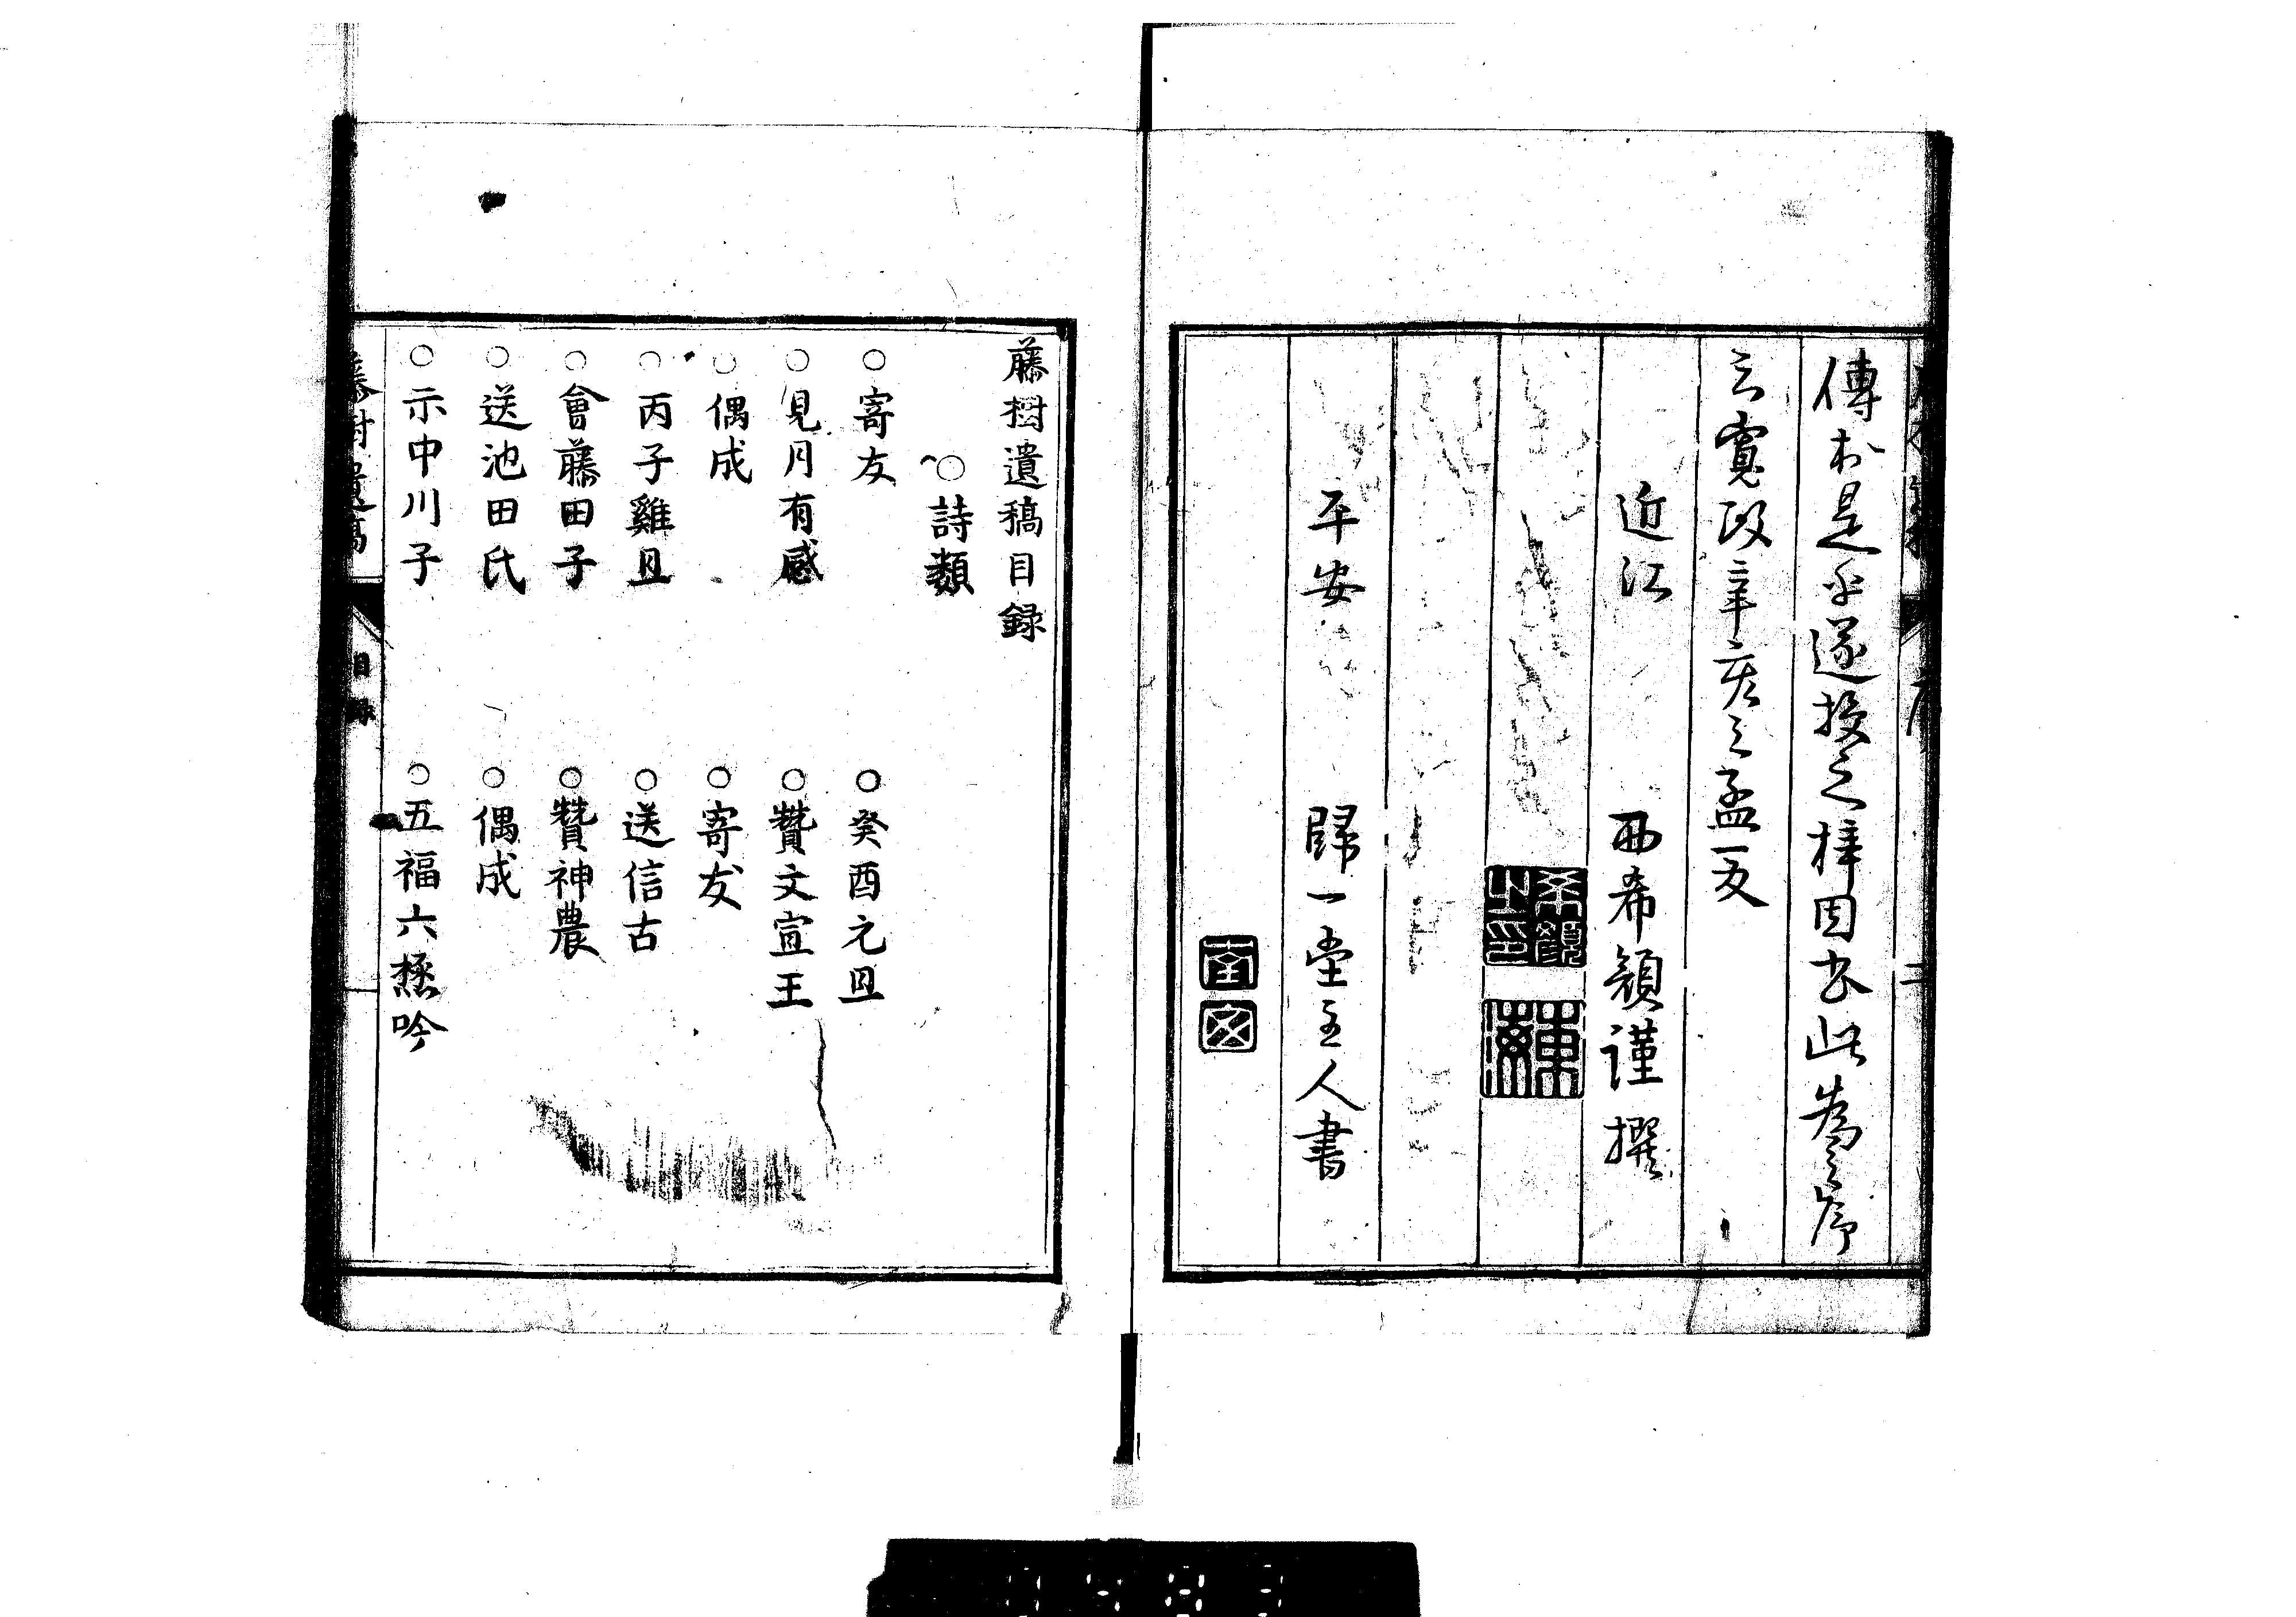 傳於是乎遂授之梓因書此為之序
云寛政辛亥之孟夏
近江 西希顔謹撰
平安 歸一堂主人書
藤樹遺稿目録
○詩類
○寄友 ○癸酉元旦
○見月有感 ○贊文宣王
○偶成 ○寄友
○丙子雞旦 ○送信古
○會藤田子 ○贊神農
○送池田氏 ○偶成
○示中川子 ○五福六極吟
藤樹遺稿 目錄